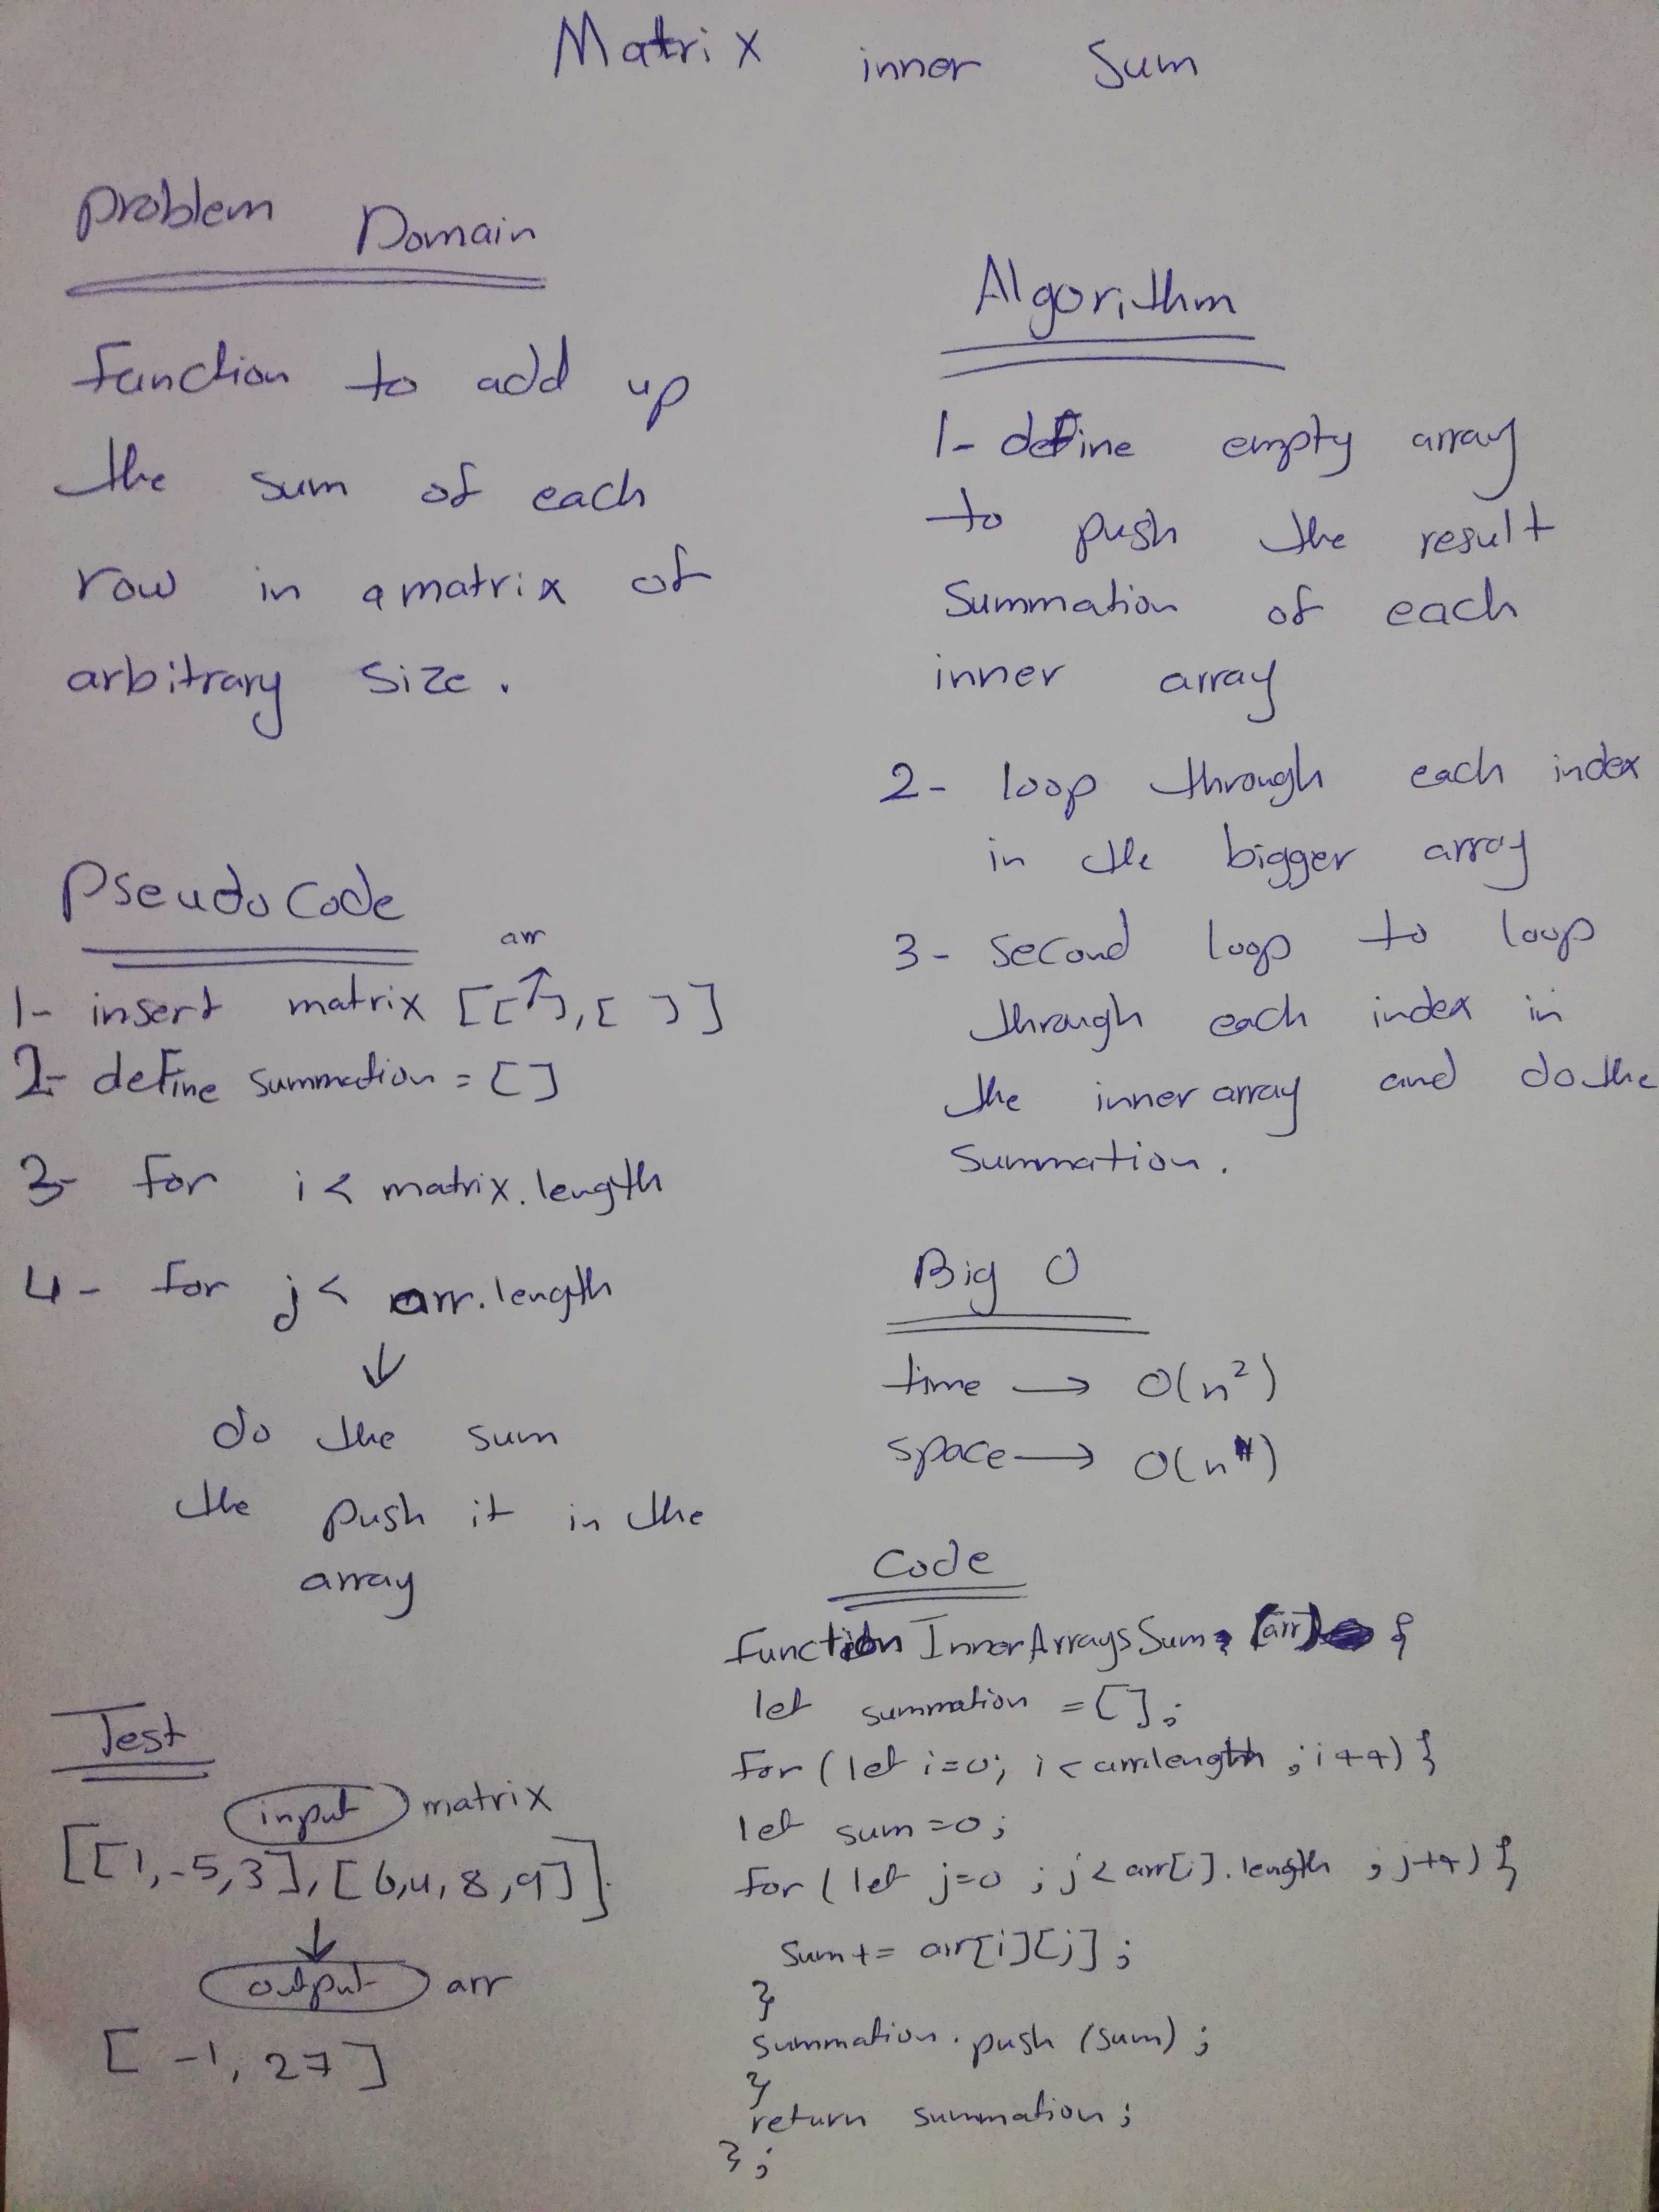 Matrix inner Sum
Problem Domain
function to add up
the sum of each
row in a matrix of
arbitrary size.
Pseudo Code
arr
1- insert matrix [[ ], [ ]]
2- define summation = []
3- for i < matrix.length
4- for j < arr.length
do the sum
the push it in the
array
Test
input matrix
[[1,-5,3], [6,4,8,9]]
output arr
[ -1, 27 ]
Algorithm
1- define empty array
to push the result
summation of each
inner array
2- loop through each index
in the bigger array
3- second loop to loop
through each index in
the inner array and do the
summation.
Big O
time → O(n²)
space → O(n)
Code
function InnerArraysSum (arr) {
let summation = [];
for (let i=0; i < arr.length ; i++) {
let sum =0;
for (let j=0 ; j < arr[i].length ; j++) {
sum += arr[i][j];
}
summation.push (sum) ;
}
return summation;
};